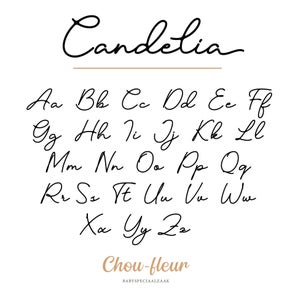 Candelia
Aa Bb Cc Dd Ee Ff
Gg Hh Ii Jj Kk Ll
Mm Nn Oo Pp Qq
Rr Ss Tt Uu Vv Ww
Xx Yy Zz
Chou-fleur
BABYSPECIAALZAAK